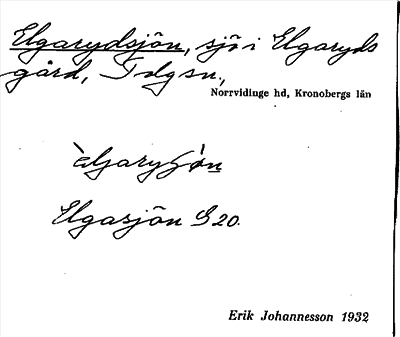 Elgarydsjön, sjö i Elgaryds
gård,
Norrvidinge hd, Kronobergs län
Elgasjön G 20.
Erik Johannesson 1932